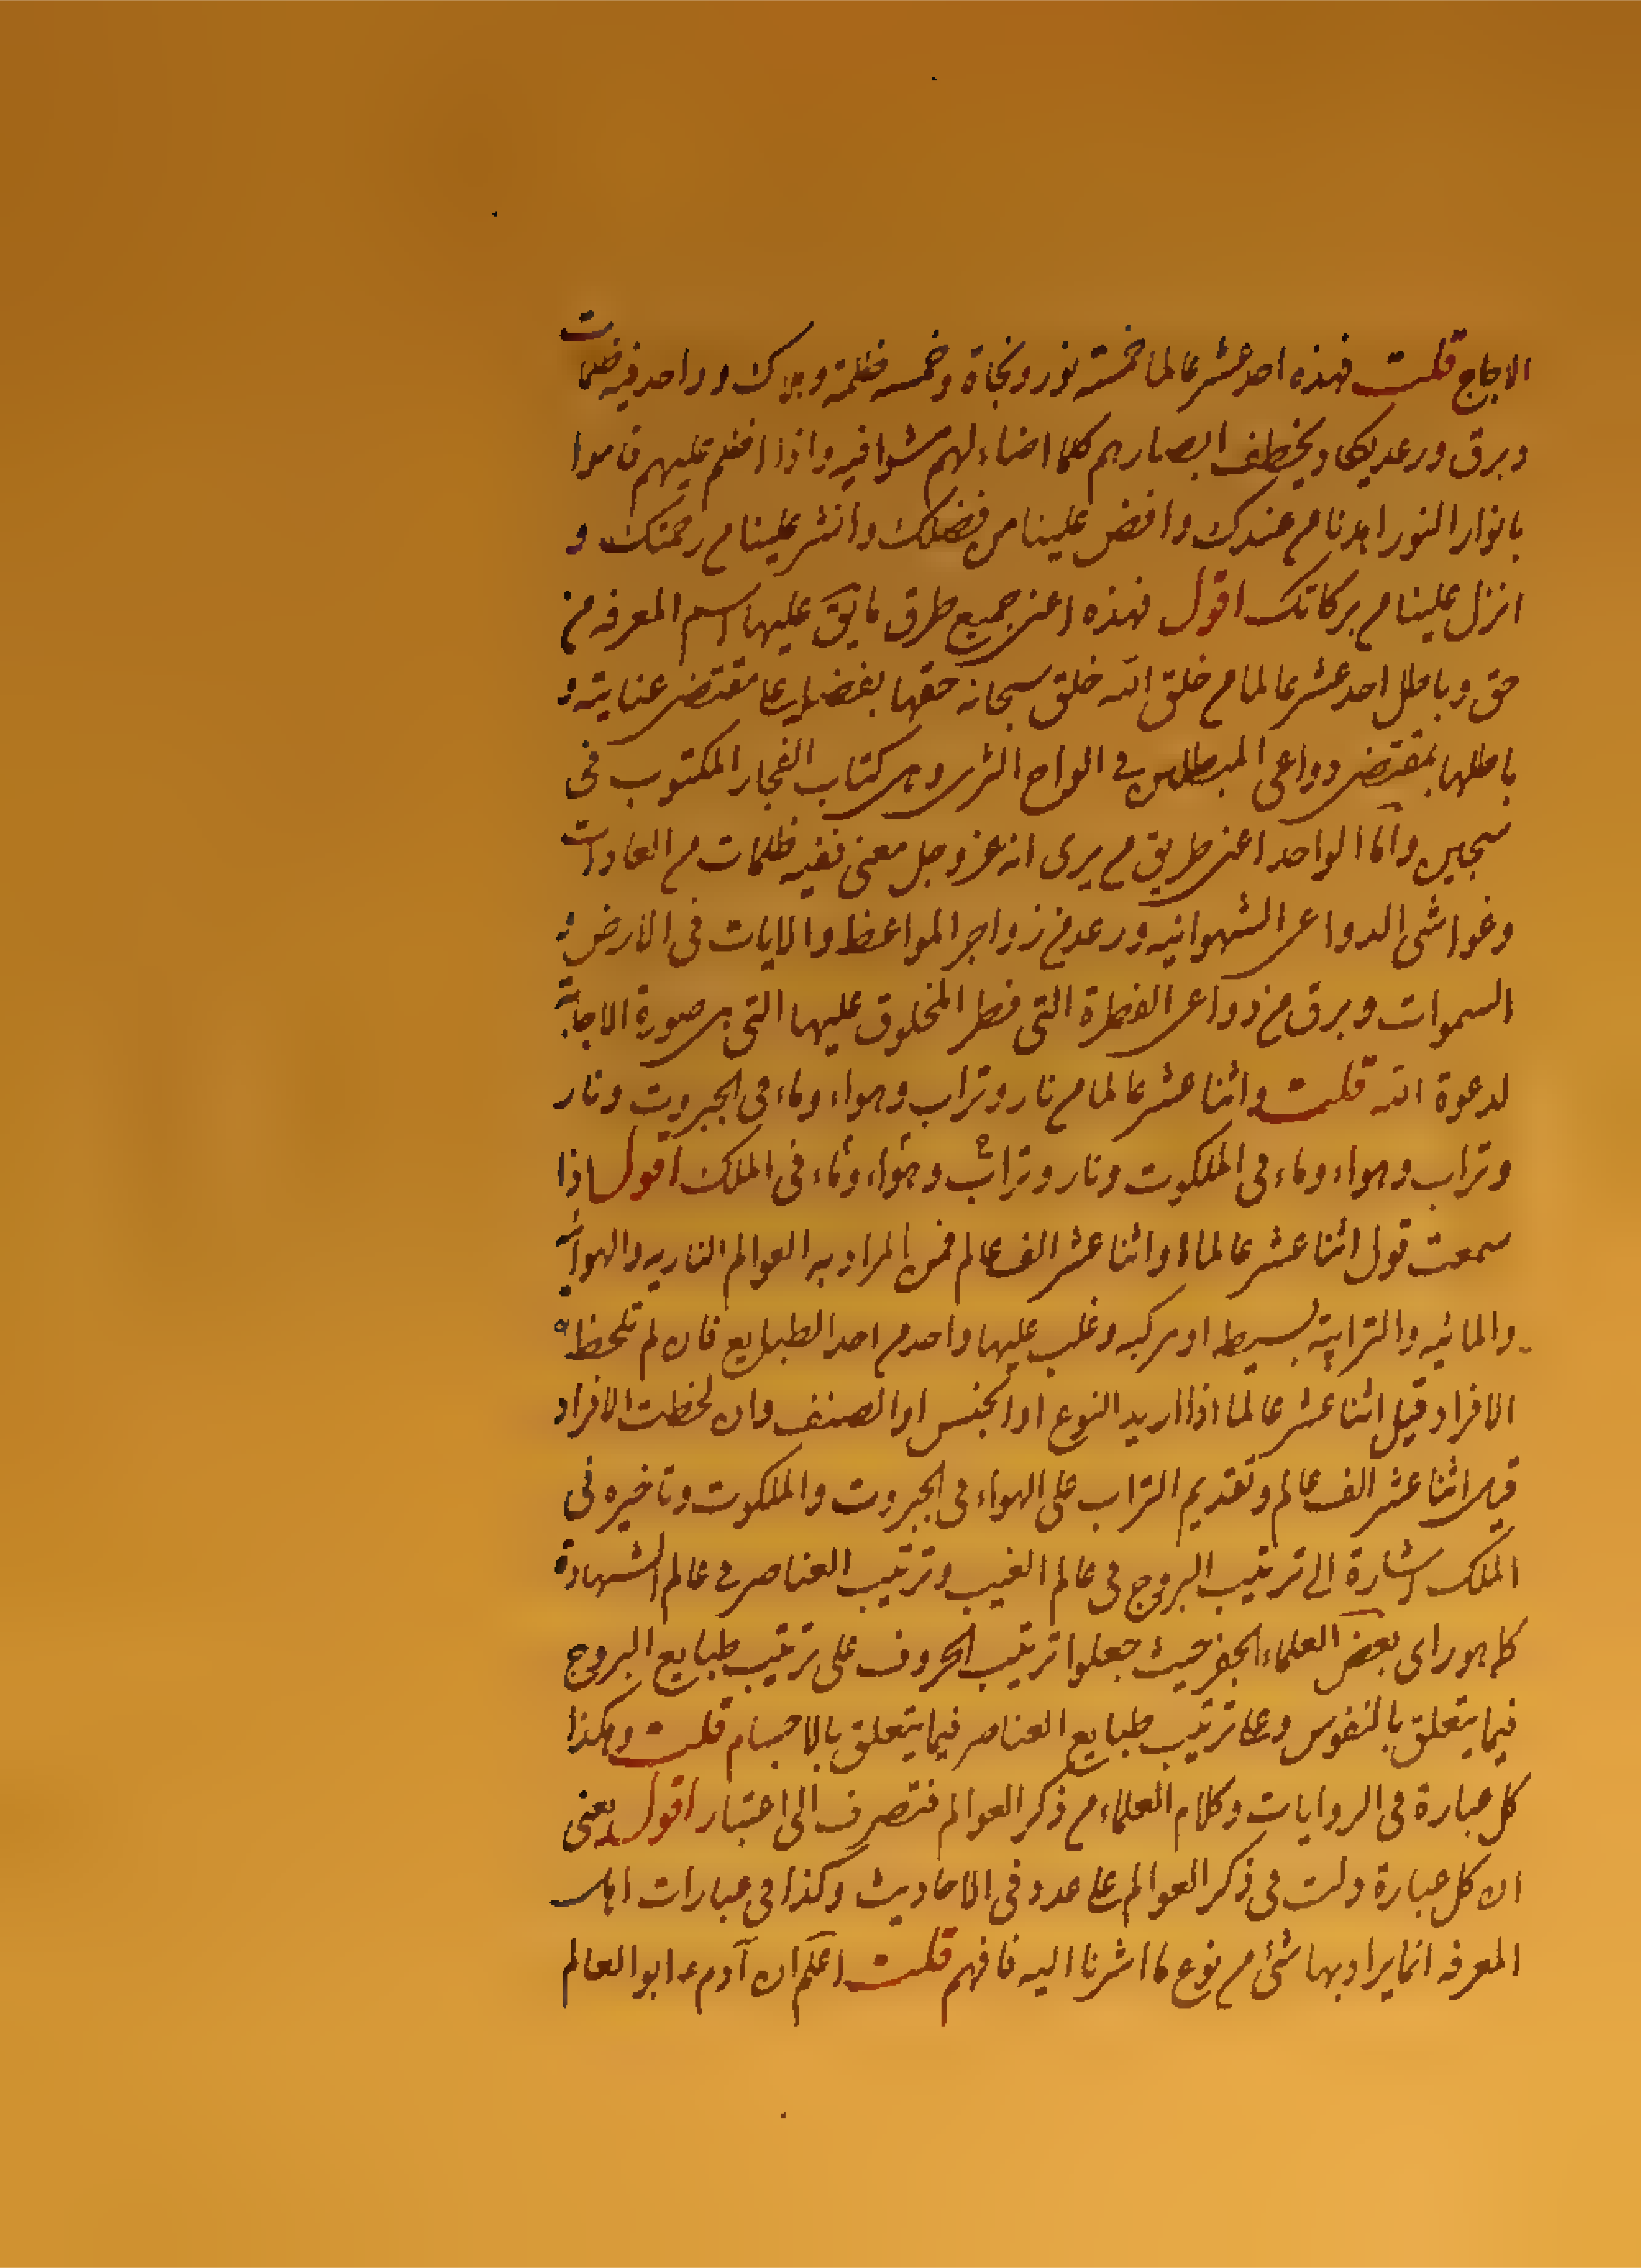 الاجاج قلت فهذه احد عشر عالما خمسة نور ونجاة وخمسه ظلمة وهلاك وواحد فيه ظلمات
وبرق ورعد يكاد يخطف ابصارهم كلما اضاء لهم مشوا فيه واذا اظلم عليهم قاموا
بانوار النور اهدنا من عندك وافض علينا من فضلك وانشر علينا من رحمتك و
انزل علينا من بركاتك اقول فهذه اعنى جميع طرق ما يق عليها اسم المعرفه من
حق وباطل احد عشر عالما من خلق الله خلق سبحانه حقها بفضله على مقتضى عنايته و
باطلها بمقتضى دواعى المبطلين فى الواح الثرى وهى كتاب الفجار المكتوب فى
سجين واما الواحد اعنى طريق من يرى انه عز وجل معنى ففيه ظلمات من العادات
وغواشى الدواعى الشهوانيه ورعد من زواجر المواعظ والايات فى الارض و
السموات وبرق من دواعى الفطرة التى فطر المخلوق عليها التى هى صورة الاجابة
لدعوة الله قلت واثنا عشر عالما من نار وتراب وهواء وماء فى الجبروت ونار
وتراب وهواء وماء فى الملكوت ونار وتراب وهواء وماء فى الملك اقول اذا
سمعت قول اثنا عشر عالما او اثنا عشر الف عالم فمن المراد به العوالم الناريه والهوائيه
والمائيه والترابية بسيطه او مركبه وغلب عليها واحد من احد الطبايع فان لم تلحظ
الافراد قيل اثنا عشر عالما اذا اريد النوع او الجنس او الصنف وان لحظت الافراد
قيل اثنا عشر الف عالم وتقديم التراب على الهواء فى الجبروت والملكوت وتاخيره فى
الملك اشارة الى ترتيب البروج فى عالم الغيب وترتيب العناصر فى عالم الشهادة
كما هو راى بعض العلماء الجفر حيث جعلوا ترتيب الحروف على ترتيب طبايع البروج
فيما يتعلق بالنفوس وعلى ترتيب طبايع العناصر فيما يتعلق بالاجسام قلت وهكذا
كل عبارة فى الروايات وكلام العلماء من ذكر العوالم فتصرف الى اعتبار اقول يعنى
ان كل عبارة دلت فى ذكر العوالم على عدد فى الاحاديث وكذا فى عبارات اهل
المعرفه انما يراد بها شئ من نوع ما اشرنا اليه فافهم قلت اعلم ان آدم ع ابو العالم